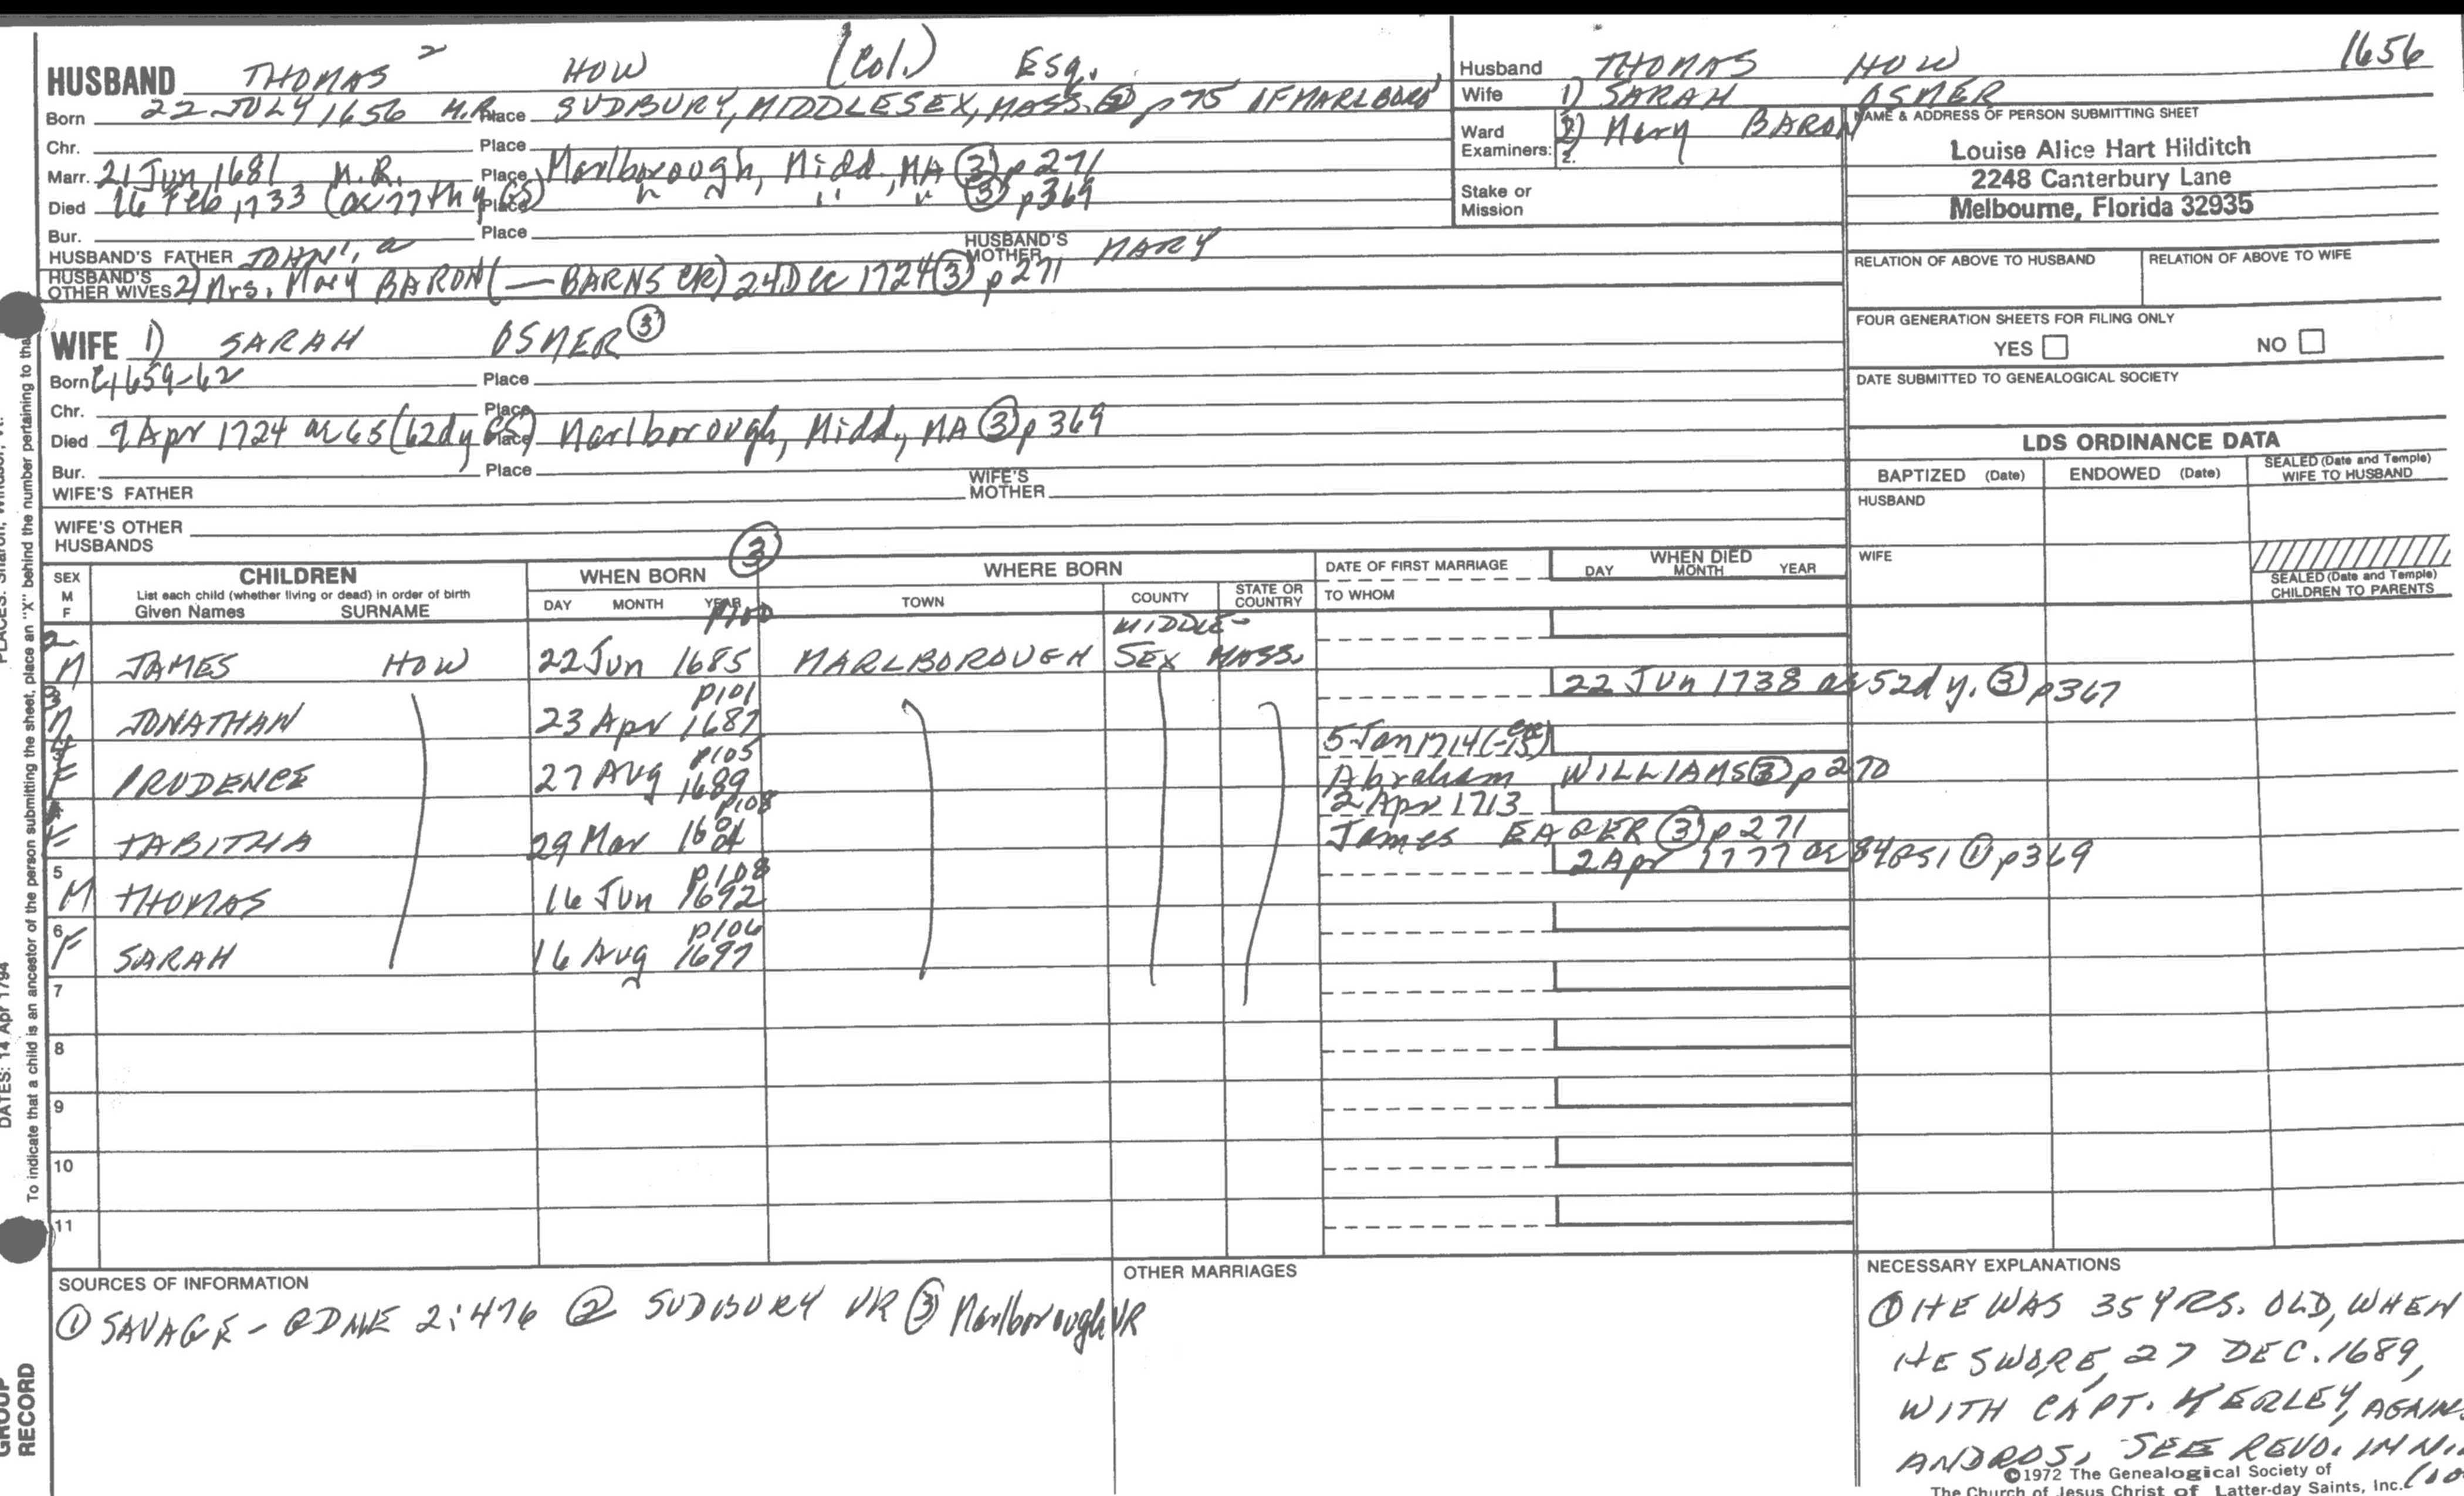 HUSBAND THOMAS 2 HOW (Col.) Esq.
Born 22 JULY 1656 H.R. Place SUDBURY, MIDDLESEX, MASS. ② p75 OF MARLBORO
Chr. Place
Marr. 21 Jun 1681 H.R. Place Marlborough, Midd., MA ③ p271
Died 16 Feb 1733 (ae 77th y GS) Place " " " " ③ p369
Bur. Place
HUSBAND'S FATHER JOHN 1, HUSBAND'S MOTHER MARY
HUSBAND'S OTHER WIVES 2) Mrs. Mary BARON (— BARNS CR) 24 Dec 1724 ③ p271
Husband THOMAS HOW 1656
Wife 1) SARAH OSMER
Ward Examiners: 2) Mary BARON
2.
Stake or Mission
NAME & ADDRESS OF PERSON SUBMITTING SHEET
Louise Alice Hart Hilditch
2248 Canterbury Lane
Melbourne, Florida 32935
RELATION OF ABOVE TO HUSBAND RELATION OF ABOVE TO WIFE
FOUR GENERATION SHEETS FOR FILING ONLY
YES NO
DATE SUBMITTED TO GENEALOGICAL SOCIETY
WIFE 1) SARAH OSMER ③
Born 1659-62 Place
Chr. Place
Died 9 Apr 1724 ae 65 (62d y GS) Place Marlborough, Midd., MA ③ p369
Bur. Place
WIFE'S FATHER WIFE'S MOTHER
WIFE'S OTHER HUSBANDS
LDS ORDINANCE DATA
BAPTIZED (Date) ENDOWED (Date) SEALED (Date and Temple) WIFE TO HUSBAND
HUSBAND
WIFE
SEALED (Date and Temple) CHILDREN TO PARENTS
SEX M F
CHILDREN
List each child (whether living or dead) in order of birth
Given Names SURNAME
WHEN BORN ③
DAY MONTH YEAR
WHERE BORN
TOWN COUNTY STATE OR COUNTRY
DATE OF FIRST MARRIAGE
TO WHOM
WHEN DIED
DAY MONTH YEAR
p100
M JAMES HOW 22 Jun 1685 MARLBOROUGH MIDDLE-SEX MASS.
p101
M JONATHAN 23 Apr 1687 22 Jun 1738 ae 52d y. ③ p367
p105
F PRUDENCE 27 Aug 1689 5 Jan 1714 Abraham WILLIAMS ③ p270
p108
F TABITHA 29 Mar 2 Apr 1713 James EAGER ③ p271
p108
5 M THOMAS 16 Jun 1692 2 Apr 1777 ae 84 GS1 ① p369
p106
6 F SARAH 16 Aug 1697
7
8
9
10
11
SOURCES OF INFORMATION
① SAVAGE - GDNE 2:476 ② SUDBURY VR ③ Marlborough VR
OTHER MARRIAGES
NECESSARY EXPLANATIONS
① HE WAS 35 YRS. OLD, WHEN
HE SWORE, 27 DEC. 1689,
WITH CAPT. KERLEY, AGAIN
ANDROS, SEE REVO. IN N.
©1972 The Genealogical Society of
The Church of Jesus Christ of Latter-day Saints, Inc.
PLACES: Sharon, Windsor, Vt.
DATES: 14 Apr 1794
To indicate that a child is an ancestor of the person submitting the sheet, place an "X" behind the number pertaining to tha
GROUP
RECORD